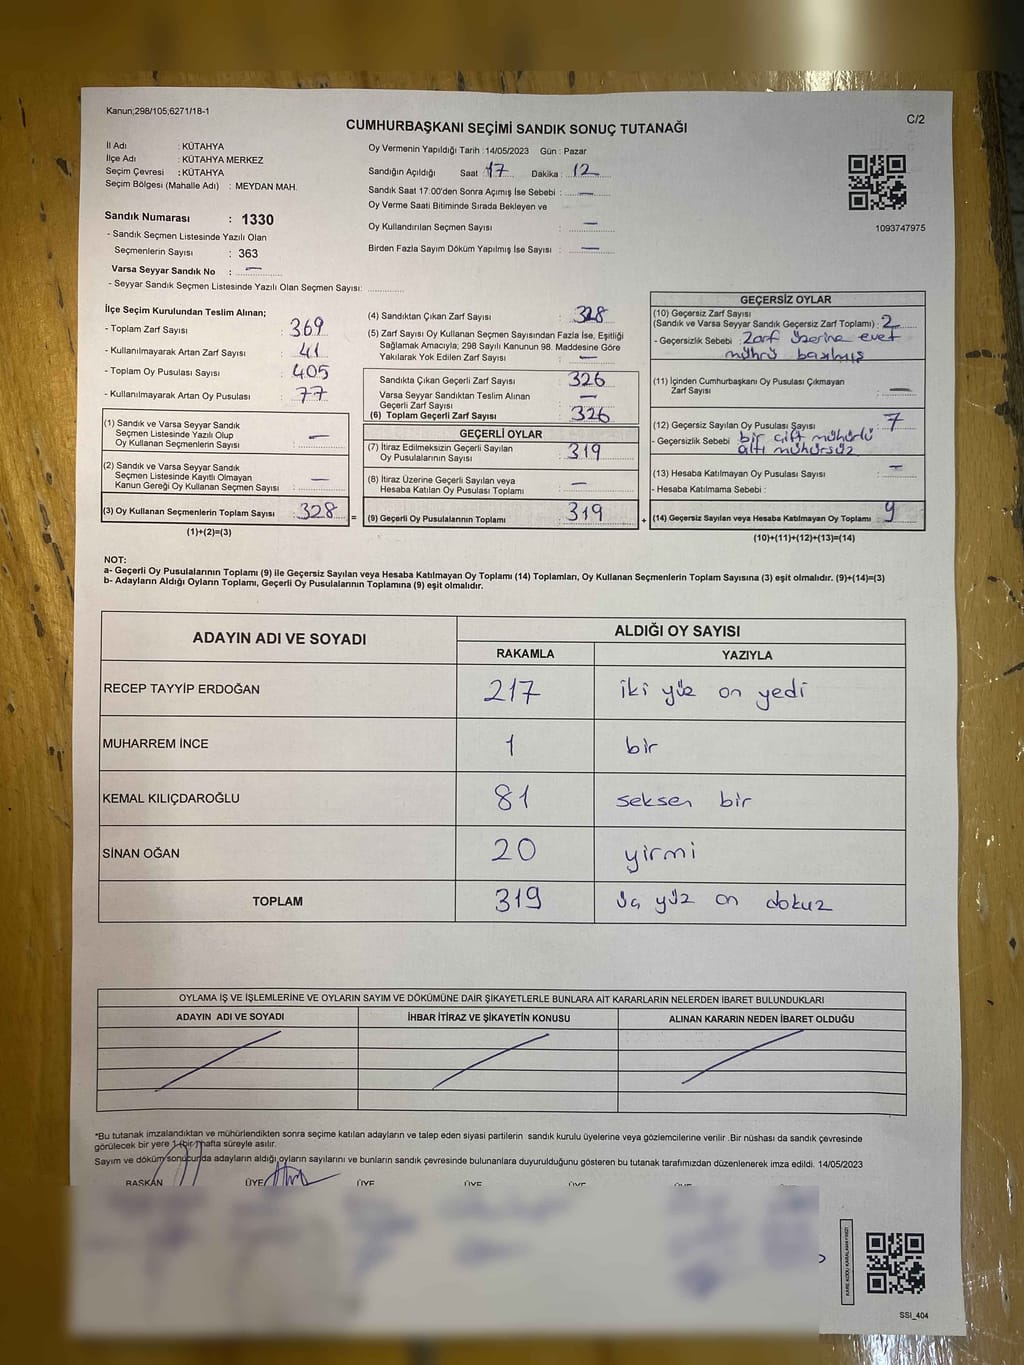 Kanun;298/105;6271/18-1
C/2
CUMHURBAŞKANI SEÇİMİ SANDIK SONUÇ TUTANAĞI
İl Adı : KÜTAHYA
İlçe Adı : KÜTAHYA MERKEZ
Seçim Çevresi : KÜTAHYA
Seçim Bölgesi (Mahalle Adı) : MEYDAN MAH.
Sandık Numarası : 1330
- Sandık Seçmen Listesinde Yazılı Olan
Seçmenlerin Sayısı : 363
Varsa Seyyar Sandık No : —
- Seyyar Sandık Seçmen Listesinde Yazılı Olan Seçmen Sayısı:
Oy Vermenin Yapıldığı Tarih :14/05/2023 Gün : Pazar
Sandığın Açıldığı Saat : 17 Dakika : 12
Sandık Saat 17:00'den Sonra Açımış İse Sebebi : —
Oy Verme Saati Bitiminde Sırada Bekleyen ve
Oy Kullandırılan Seçmen Sayısı : —
Birden Fazla Sayım Döküm Yapılmış İse Sayısı : —
1093747975
İlçe Seçim Kurulundan Teslim Alınan;
- Toplam Zarf Sayısı : 369
- Kullanılmayarak Artan Zarf Sayısı : 41
- Toplam Oy Pusulası Sayısı : 405
- Kullanılmayarak Artan Oy Pusulası : 77
(1) Sandık ve Varsa Seyyar Sandık
Seçmen Listesinde Yazılı Olup
Oy Kullanan Seçmenlerin Sayısı : —
(2) Sandık ve Varsa Seyyar Sandık
Seçmen Listesinde Kayıtlı Olmayan
Kanun Gereği Oy Kullanan Seçmen Sayısı : —
(3) Oy Kullanan Seçmenlerin Toplam Sayısı : 328
(1)+(2)=(3)
=
(4) Sandıktan Çıkan Zarf Sayısı : 328
(5) Zarf Sayısı Oy Kullanan Seçmen Sayısından Fazla İse, Eşitliği
Sağlamak Amacıyla; 298 Sayılı Kanunun 98. Maddesine Göre
Yakılarak Yok Edilen Zarf Sayısı : —
Sandıkta Çıkan Geçerli Zarf Sayısı : 326
Varsa Seyyar Sandıktan Teslim Alınan
Geçerli Zarf Sayısı : —
(6) Toplam Geçerli Zarf Sayısı : 326
GEÇERLİ OYLAR
(7) İtiraz Edilmeksizin Geçerli Sayılan
Oy Pusulalarının Sayısı : 319
(8) İtiraz Üzerine Geçerli Sayılan veya
Hesaba Katılan Oy Pusulası Toplamı : —
(9) Geçerli Oy Pusulalarının Toplamı : 319
+
GEÇERSİZ OYLAR
(10) Geçersiz Zarf Sayısı
(Sandık ve Varsa Seyyar Sandık Geçersiz Zarf Toplamı) : 2
- Geçersizlik Sebebi : Zarf üzerine evet
mührü basılmış
(11) İçinden Cumhurbaşkanı Oy Pusulası Çıkmayan
Zarf Sayısı : —
(12) Geçersiz Sayılan Oy Pusulası Sayısı : 7
- Geçersizlik Sebebi : bir çift mühürlü
altı mühürsüz
(13) Hesaba Katılmayan Oy Pusulası Sayısı : —
- Hesaba Katılmama Sebebi :
(14) Geçersiz Sayılan veya Hesaba Katılmayan Oy Toplamı : 9
(10)+(11)+(12)+(13)=(14)
NOT:
a- Geçerli Oy Pusulalarının Toplamı (9) ile Geçersiz Sayılan veya Hesaba Katılmayan Oy Toplamı (14) Toplamları, Oy Kullanan Seçmenlerin Toplam Sayısına (3) eşit olmalıdır. (9)+(14)=(3)
b- Adayların Aldığı Oyların Toplamı, Geçerli Oy Pusulalarının Toplamına (9) eşit olmalıdır.
ADAYIN ADI VE SOYADI
ALDIĞI OY SAYISI
RAKAMLA YAZIYLA
RECEP TAYYİP ERDOĞAN 217 iki yüz on yedi
MUHARREM İNCE 1 bir
KEMAL KILIÇDAROĞLU 81 seksen bir
SİNAN OĞAN 20 yirmi
TOPLAM 319 üç yüz on dokuz
OYLAMA İŞ VE İŞLEMLERİNE VE OYLARIN SAYIM VE DÖKÜMÜNE DAİR ŞİKAYETLERLE BUNLARA AİT KARARLARIN NELERDEN İBARET BULUNDUKLARI
ADAYIN ADI VE SOYADI İHBAR İTİRAZ VE ŞİKAYETİN KONUSU ALINAN KARARIN NEDEN İBARET OLDUĞU
*Bu tutanak imzalandıktan ve mühürlendikten sonra seçime katılan adayların ve talep eden siyasi partilerin sandık kurulu üyelerine veya gözlemcilerine verilir .Bir nüshası da sandık çevresinde
görülecek bir yere 1 (bir) hafta süreyle asılır.
Sayım ve döküm sonucunda adayların aldığı oyların sayılarını ve bunların sandık çevresinde bulunanlara duyurulduğunu gösteren bu tutanak tarafımızdan düzenlenerek imza edildi. 14/05/2023
BAŞKAN ÜYE ÜYE ÜYE ÜYE ÜYE
SSI_404